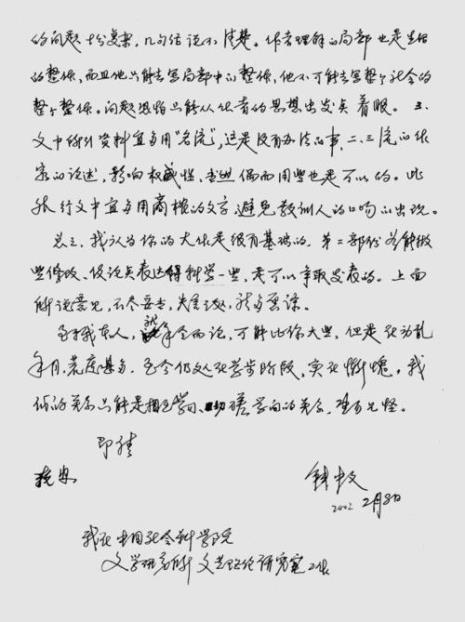 的问题十分复杂，几句话说不清楚。作者理解的局部也是生活
的整体，而且他只能去写局部中的整体，他不可能去写整个社会的
整个整体。问题恐怕只能从作者的思想出发点着眼。三、
文中所引资料宜多用“名流”，这是没有办法的事，二、三流的作
家的论述，影响权威性，当然偶而用些也是可以的。此
外行文中宜多用商榷的文字，避免教训人的口吻的出现。
总之，我认为你的大作是很有基础的，第二部份若能做
些修改，使论点表达得科学一些，是可以争取发表的。上面
所说意见，不尽妥当，失言之处，请多原谅。
至于我本人，就年令而说，可能比你大些，但是在动乱
年月，荒废甚多，至今仍处在学步阶段，实在惭愧。我
们的关系只能是相互学习、切磋学问的关系，望勿见怪。
即祝
撰安
钱中文
2002 2月8日
我在中国社会科学院
文学研究所文艺理论研究室工作